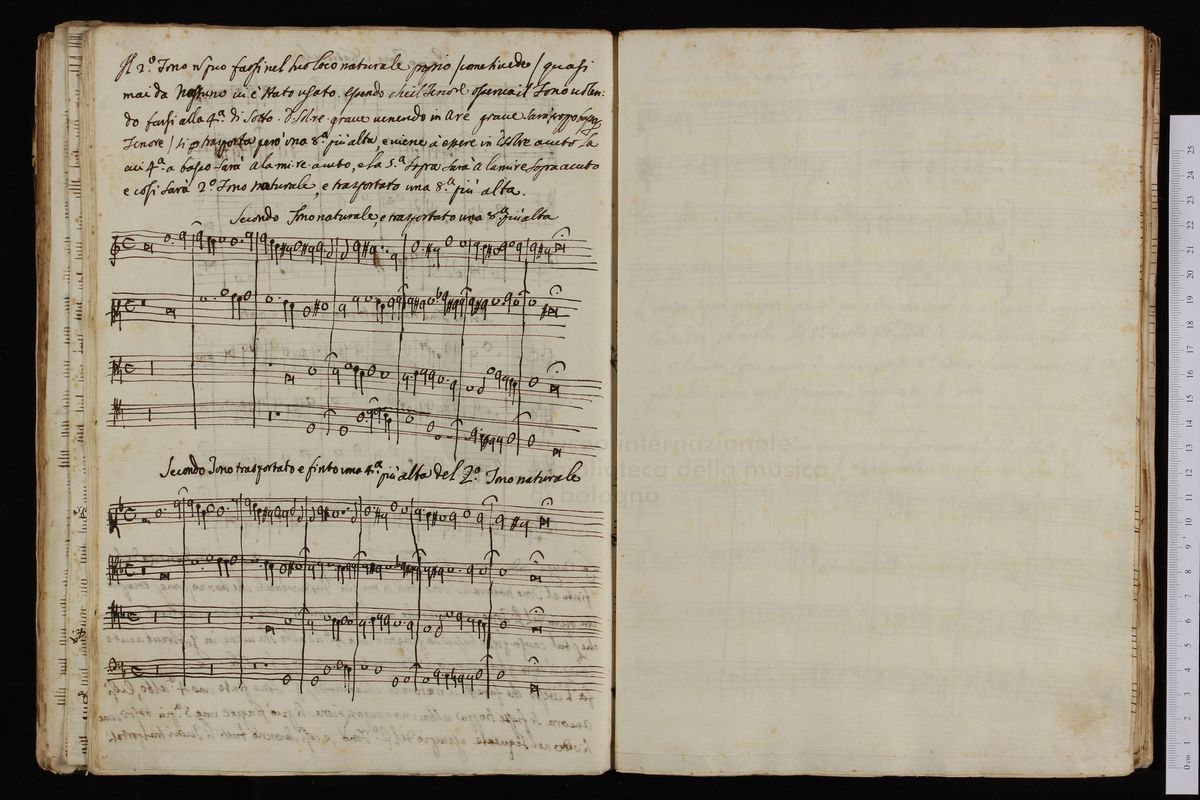 Il 2.º Tono si puo farsi nel suo loco naturale /come si vede/ quasi
mai da nessuno vi è stato usato essendo che il Tenore osserva il Tono volen:
do farsi alla 4.ª di sotto. D. sol re grave venendo in Are grave sarà troppo basso
Tenore / si trasporta però una 8.ª più alta, e viene à essere in D sol re acuto la
cui 4.ª a basso sarà alamire acuto, e la 5.ª sopra sarà alamire sopra acuto
e così sarà 2.º Tono naturale, e trasportato una 8.ª più alta.
Secondo Tono naturale, e trasportato una 8.ª più alta
Secondo Tono trasportato e finto una 4.ª più alta del 2.º Tono naturale
museo internazionale
biblioteca della musica
di bologna
0 cm 1 2 3 4 5 6 7 8 9 10 11 12 13 14 15 16 17 18 19 20 21 22 23 24 25